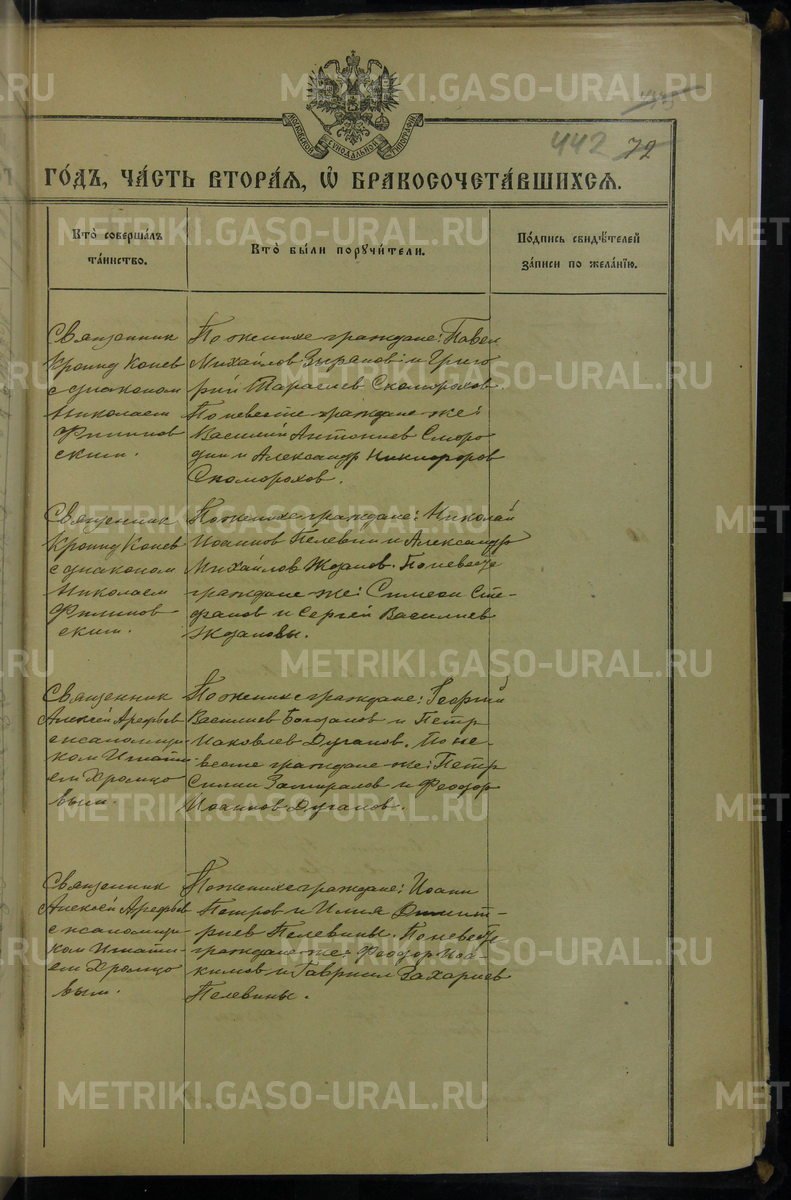 442 72
МОСКОВСКОЙ СѴНОДАЛЬНОЙ ТИПОГРАФІИ
ГО́ДЪ, ЧА́СТЬ ВТОРА́Я, Ѡ҆ БРАКОСОЧЕТА́ВШИХСЯ.
Кто̀ соверша́лъ
та́инство.
Кто̀ бы́ли порꙋчи́тели.
По́дпись свидѣ́телей
за́писи по жела́нїю.
Священник
Кронид Конев
с диаконом
Николаем
Филипов
ским.
По женихе граждане: Павел
Михайлов Зырянов и Григо
рий Тарасиев Скоморохов.
По невесте граждане же:
Василий Антониев Сморо
дин и Александр Никифоров
Скоморохов.
Священник
Кронид Конев
с диаконом
Николаем
Филипов
ским.
По женихе граждане: Николай
Иоаннов Пелевин и Александр
Михайлов Жданов. По невесте
граждане же: Симеон Сте-
фанов и Сергей Василиев
Ждановы.
Священник
Алексей Арефьев
с псаломщи-
ком Игнати-
ем Хромцо
вым.
По женихе граждане: Георгий
Василиев Богданов и Петр
Иаковлев Дуганов. По не-
весте граждане же: Петр
Силин Замиралов и Феодор
Иоаннов Дуганов.
Священник
Алексей Арефьев
с псаломщи-
ком Игнати-
ем Хромцо
вым.
По женихе граждане: Иоанн
Петров и Илия Димит-
риев Пелевины. По невесте
граждане же: Феодор Иоа-
кимов и Гавриил Захариев
Пелевины.
METRIKI.GASO-URAL.RU